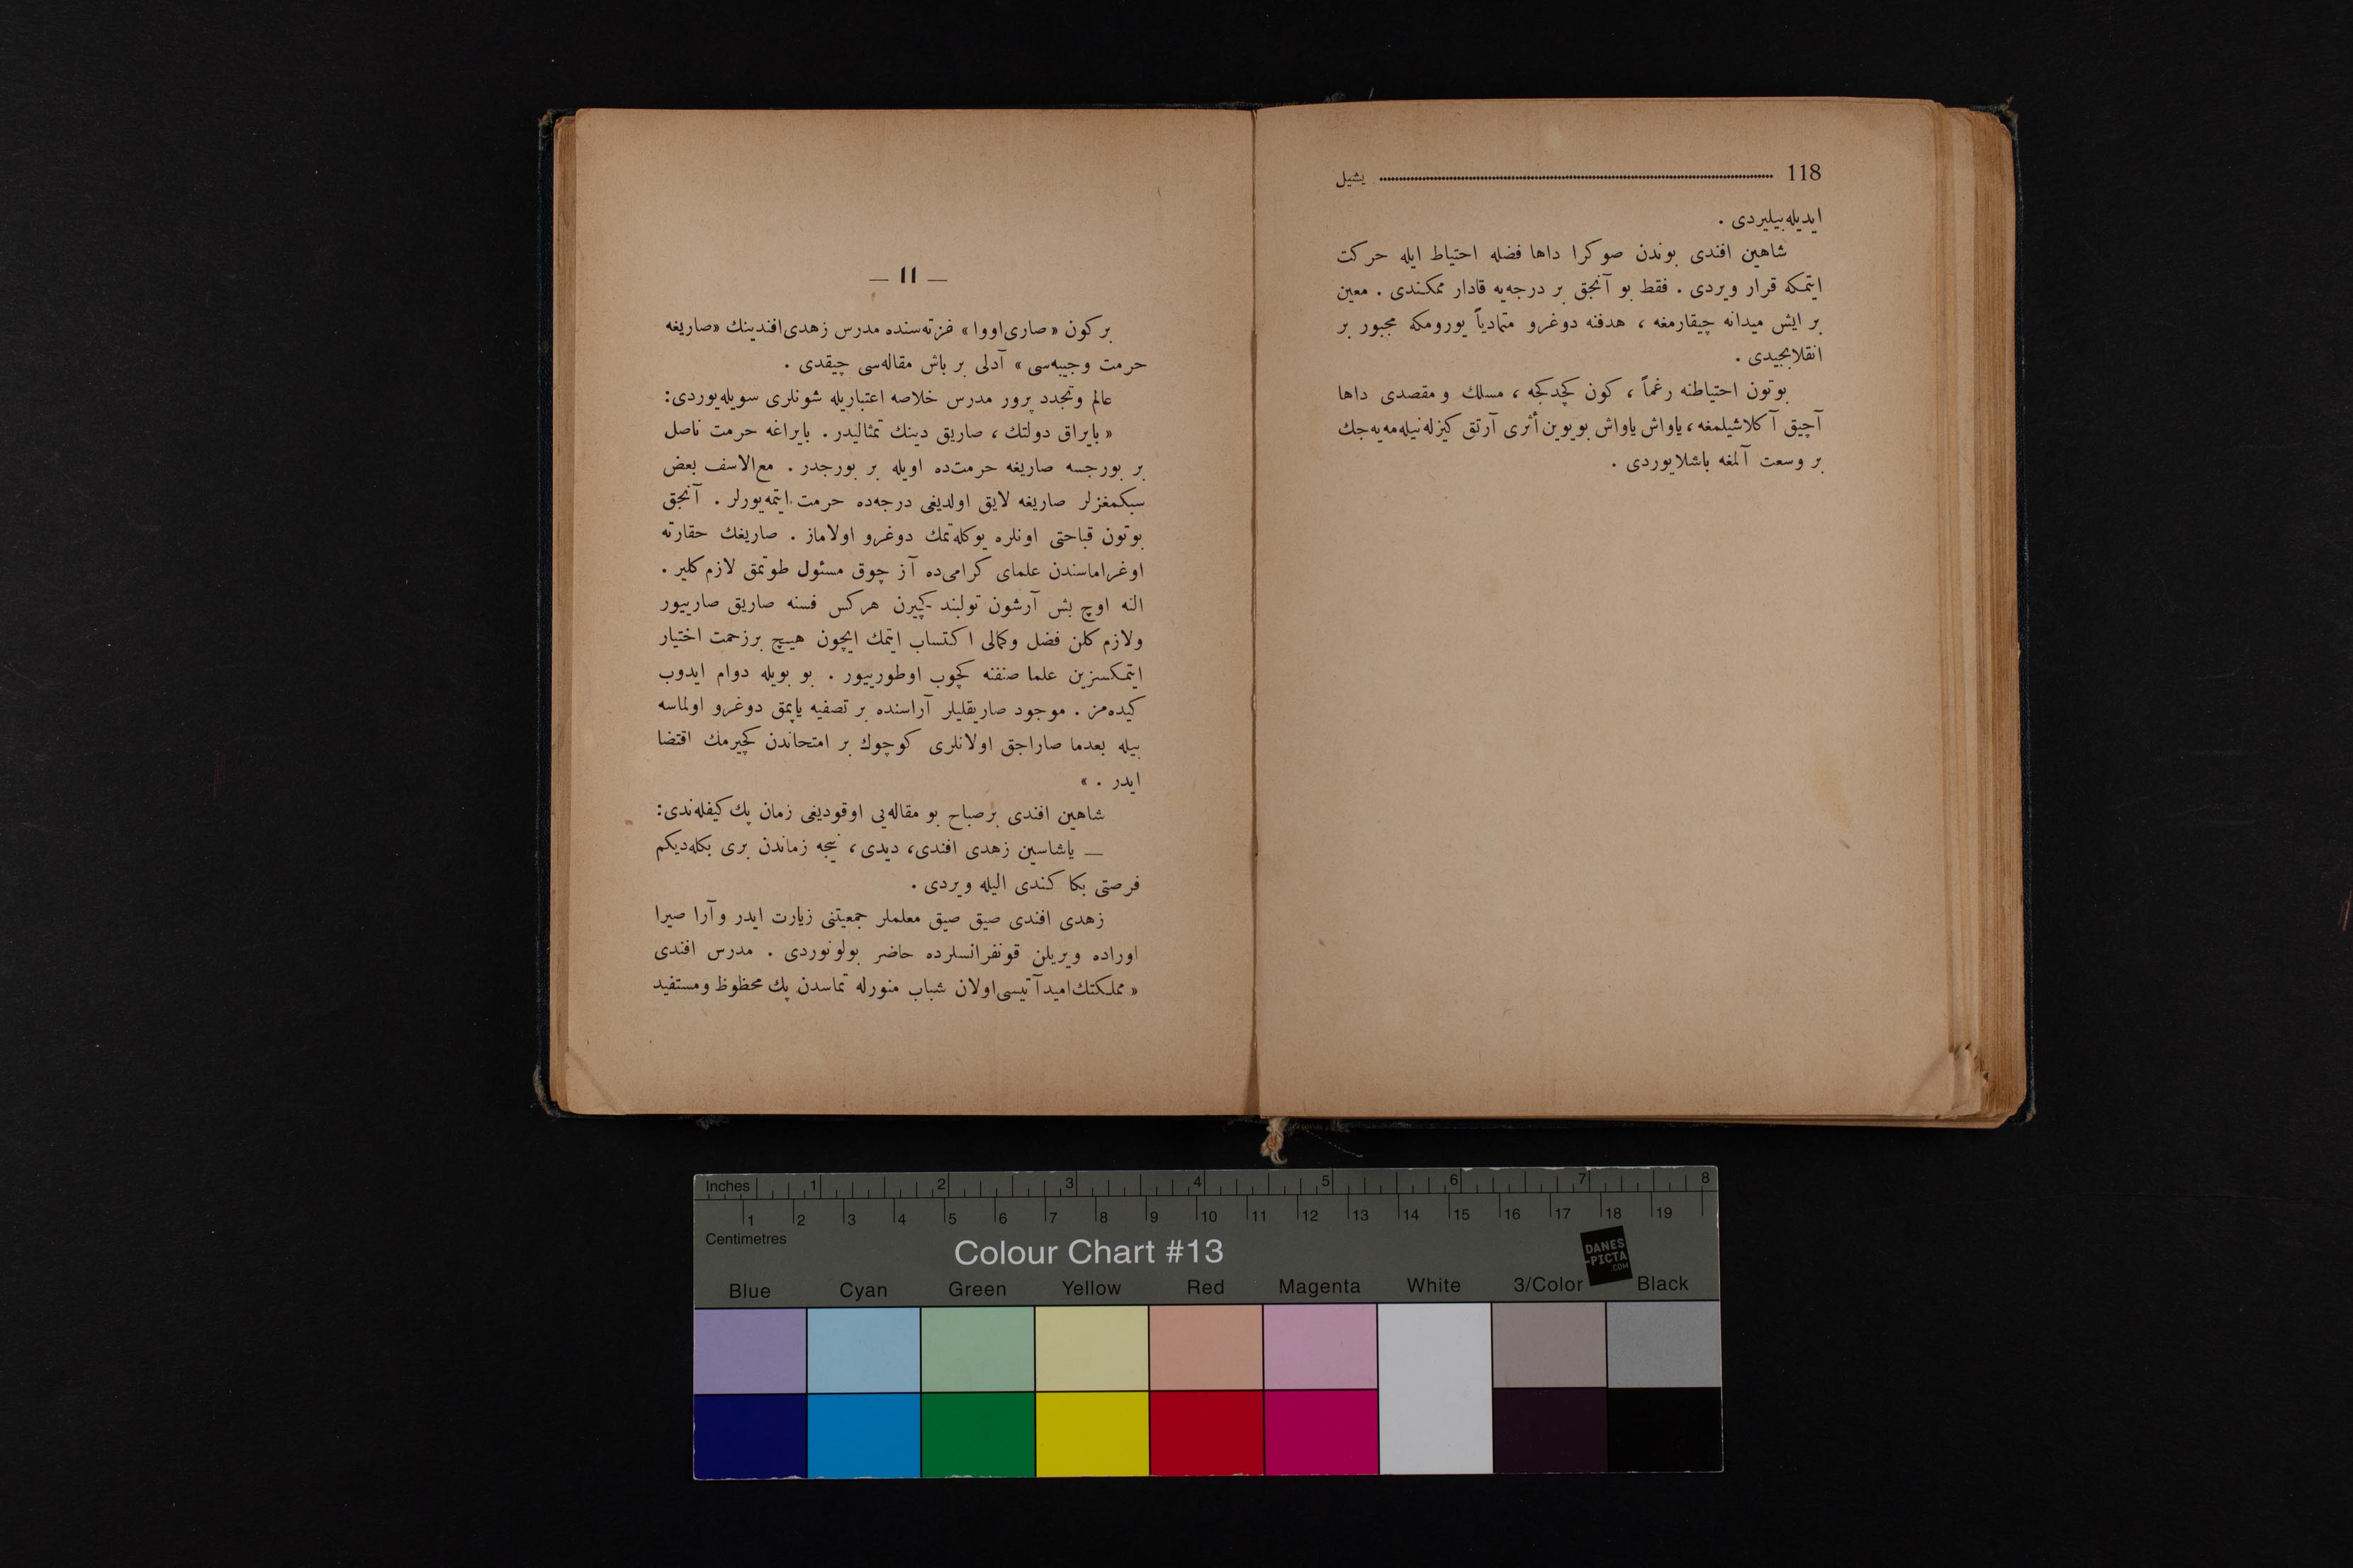 118 يشيل
ايديله‌بيليردى .
شاهين افندى بوندن صوكرا داها فضله احتياط ايله حركت
ايتمكه قرار ويردى . فقط بو آنجق بر درجه‌يه قادار ممكندى . معين
بر ايش ميدانه چيقارمغه ، هدفنه دوغرو متمادياً يورومكه مجبور بر
انقلابجيدى .
بوتون احتياطنه رغماً ، كون كچدكجه ، مسلك و مقصدى داها
آچيق آكلاشيلمغه ، ياواش ياواش بويوين أثرى آرتق كيزله‌نيله‌مه‌يه‌جك
بر وسعت آلمغه باشلايوردى .
— ١١ —
بر كون « صارى‌اووا » غزته‌سنده مدرس زهدى‌افندينك «صاريغه
حرمت وجيبه‌سى » آدلى بر باش مقاله‌سى چيقدى .
عالم وتجدد پرور مدرس خلاصه اعتباريله شونلرى سويله‌يوردى:
« بايراق دولتك ، صاريق دينك تمثاليدر . بايراغه حرمت ناصل
بر بورجسه صاريغه حرمت‌ده اويله بر بورجدر . مع‌الاسف بعض
سبكمغزلر صاريغه لايق اولديغى درجه‌ده حرمت ايتمه‌يورلر . آنجق
بوتون قباحتى اونلره يوكله‌تمك دوغرو اولاماز . صاريغك حقارته
اوغراماسندن علماى كرامى‌ده آز چوق مسئول طوتمق لازم كلير .
النه اوچ بش آرشون تولبند كچيرن هركس فسنه صاريق صارييور
ولازم كلن فضل وكمالى اكتساب ايتمك ايچون هيچ برزحمت اختيار
ايتمكسزين علما صنفنه كچوب اوطورييور . بو بويله دوام ايدوب
كيده‌مز . موجود صاريقليلر آراسنده بر تصفيه ياپمق دوغرو اولماسه
بيله بعدما صاراجق اولانلرى كوچوك بر امتحاندن كچيرمك اقتضا
ايدر . »
شاهين افندى برصباح بو مقاله‌يى اوقوديغى زمان پك كيفله‌ندى:
— ياشاسين زهدى افندى، ديدى، نيجه زماندن برى بكله‌ديكم
فرصتى بكا كندى اليله ويردى .
زهدى افندى صيق صيق معلملر جمعيتنى زيارت ايدر وآرا صيرا
اوراده ويريلن قونفرانسلرده حاضر بولونوردى . مدرس افندى
« مملكتك‌اميدآتيسى‌اولان شباب منورله تماسدن پك محظوظ ومستفيد
Inches 1 2 3 4 5 6 7 8
1 2 3 4 5 6 7 8 9 10 11 12 13 14 15 16 17 18 19
Centimetres
Colour Chart #13
DANES
-PICTA
.COM
Blue Cyan Green Yellow Red Magenta White 3/Color Black